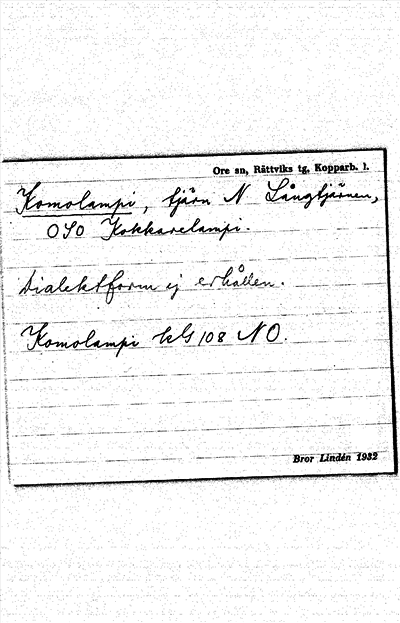 Ore sn, Rättviks tg, Kopparb. l.
Komolampi, tjärn N Långtjärnen,
OSO Kokkarelampi.
Dialektform ej erhållen.
Komolampi kls 108 NO.
Bror Lindén 1932